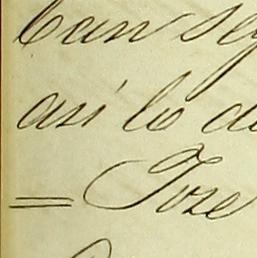 ban se
asi lo d
= Jose